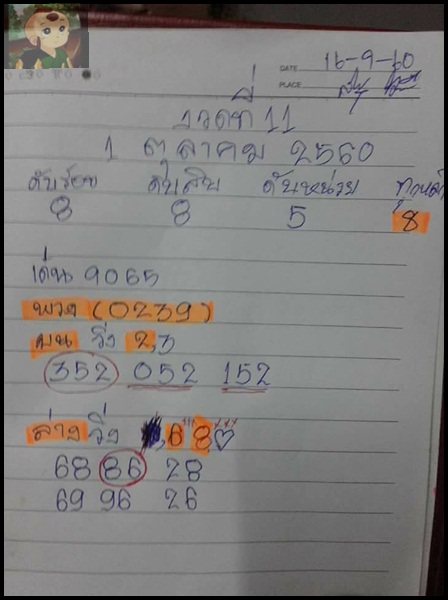 DATE 16-9-60
PLACE
งวดที่ 11
1 ตุลาคม 2560
ดับร้อย ดับสิบ ดับหน่วย
8 8 5 8
เด่น 9065
พวง (0239)
บน วิ่ง 2,3
352 052 152
ล่าง วิ่ง 6 8
68 86 28
69 96 26